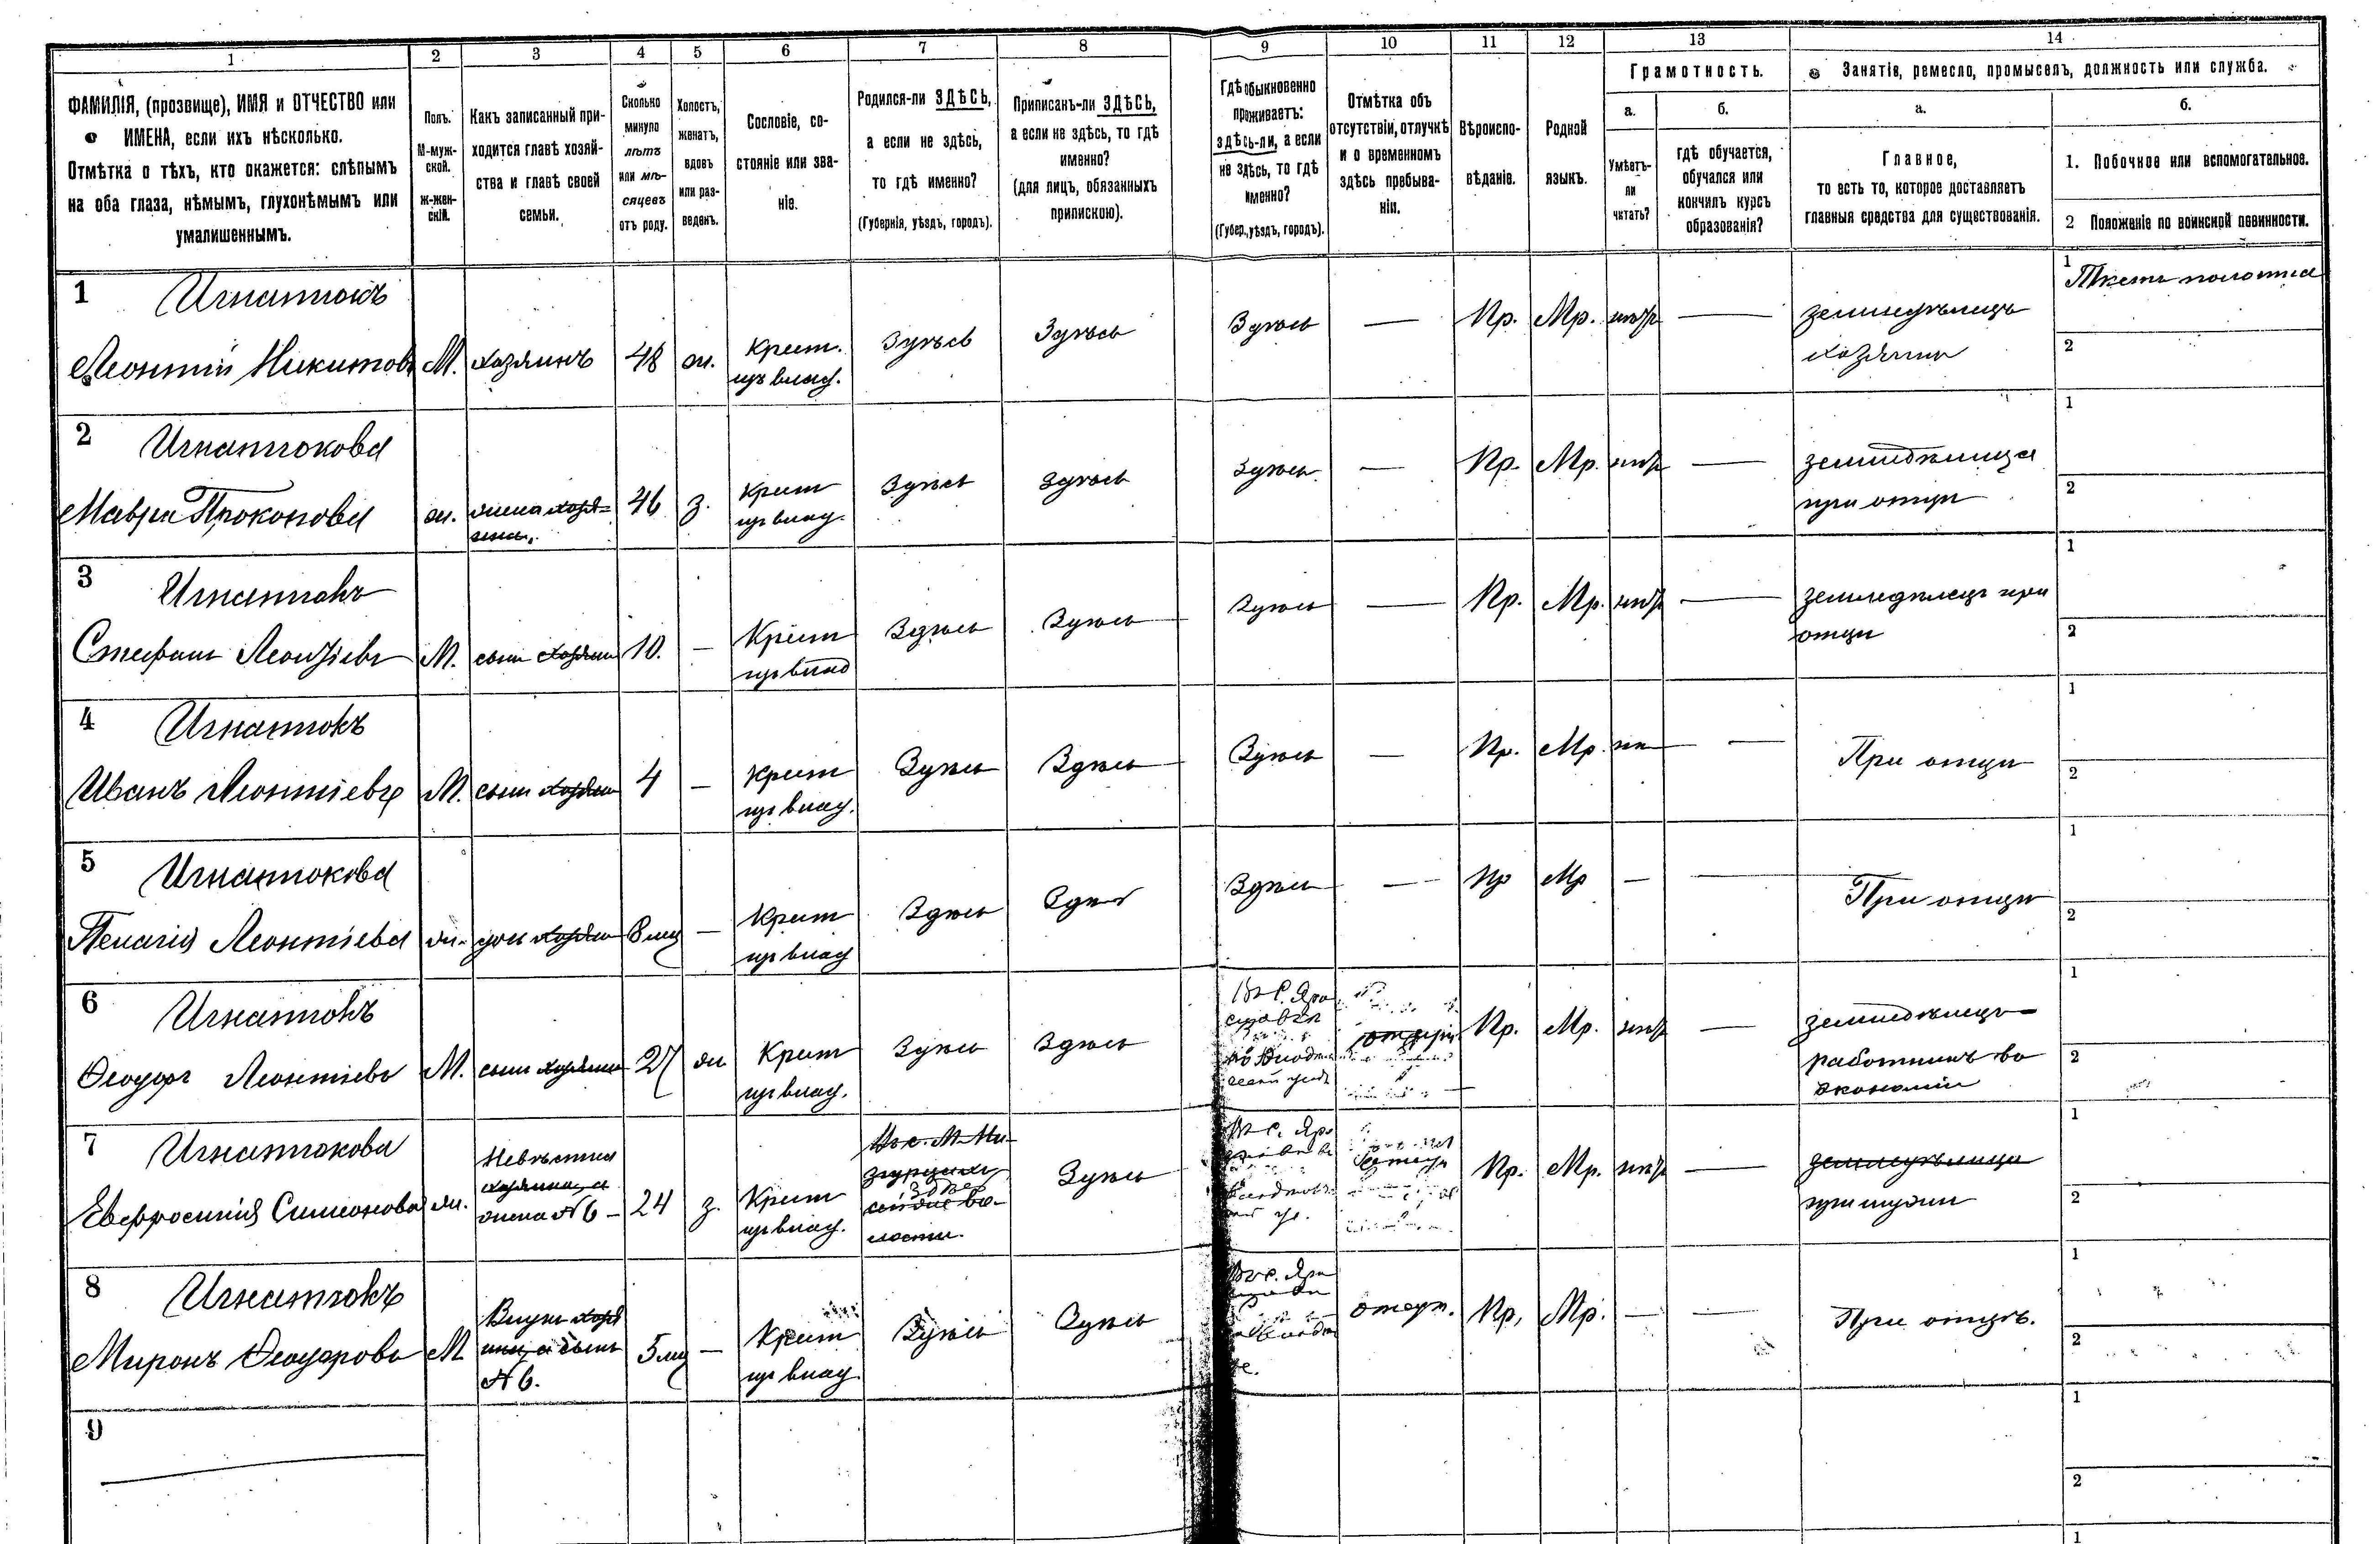 1 2 3 4 5 6 7 8 9 10 11 12 13 14
ФАМИЛІЯ, (прозвище), ИМЯ и ОТЧЕСТВО или
ИМЕНА, если ихъ нѣсколько.
Отмѣтка о тѣхъ, кто окажется: слѣпымъ
на оба глаза, нѣмымъ, глухонѣмымъ или
умалишеннымъ.
Полъ.
М-муж-
ской.
ж-жен-
скій.
Какъ записанный при-
ходится главѣ хозяй-
ства и главѣ своей
семьи.
Сколько
минуло
лѣтъ
или мѣ-
сяцевъ
отъ роду.
Холостъ,
женатъ,
вдовъ
или раз-
веденъ.
Сословіе, со-
стояніе или зва-
ніе.
Родился-ли ЗДѢСЬ,
а если не здѣсь,
то гдѣ именно?
(Губернія, уѣздъ, городъ).
Приписанъ-ли ЗДѢСЬ,
а если не здѣсь, то гдѣ
именно?
(для лицъ, обязанныхъ
припискою).
Гдѣ обыкновенно
проживаетъ:
здѣсь-ли, а если
не здѣсь, то гдѣ
именно?
(Губер., уѣздъ, городъ).
Отмѣтка объ
отсутствіи, отлучкѣ
и о временномъ
здѣсь пребыва-
ніи.
Вѣроиспо-
вѣданіе.
Родной
языкъ.
Грамотность.
а.
Умѣетъ-
ли
читать?
б.
гдѣ обучается,
обучался или
кончилъ курсъ
образованія?
Занятіе, ремесло, промыселъ, должность или служба.
а.
Главное,
то есть то, которое доставляетъ
главныя средства для существованія.
б.
1. Побочное или вспомогательное.
2 Положеніе по воинской повинности.
1 Игнатюкъ
Леонтій Никитовъ М. хозяинъ 48 ж. Крест.
из влад. Здѣсь Здѣсь Здѣсь — Пр. Мр. нѣтъ — земледѣлецъ
хозяинъ
1 Ткетъ полотна
2
2 Игнатюкова
Мавра Прокопова ж. жена хозя-
ина. 46 з. Крест
из влад. Здѣсь Здѣсь Здѣсь — Пр. Мр. нѣтъ —
при отцѣ
1
2
3 Игнатюкъ
Стефанъ Леонтіевъ М. сынъ хозяина 10. — Крест
из влад Здѣсь Здѣсь Здѣсь — Пр. Мр. нѣтъ — земледѣлецъ при
отцѣ
1
2
4 Игнатюкъ
Иванъ Леонтіевъ М. сынъ хозяина 4 — Крест
из влад. Здѣсь Здѣсь Здѣсь — Пр. Мр. — — При отцѣ
1
2
5 Игнатюкова
Пелагія Леонтіева ж. дочь хозяина 8 мц — Крест
из влад Здѣсь Здѣсь Здѣсь — Пр Мр — — При отцѣ
1
2
6 Игнатюкъ
Ѳеодоръ Леонтіевъ М. сынъ хозяина 27 ж Крест
из влад. Здѣсь Здѣсь Пр. Мр. нѣтъ — земледѣлецъ—
работникъ во
экономіи
1
2
7 Игнатюкова
Евфросинія Симеонова ж. Невѣстка
хозяина, а
жена №6 — 24 з. Крест
из влад. Здѣсь Пр. Мр. нѣтъ — земледѣлица
при мужѣ
1
2
8 Игнатюкъ
Миронъ Ѳеодоровъ М Внукъ хозя
ина, а сынъ
№ 6. 5 мц — Крест
из влад. Здѣсь Здѣсь отсут. Пр. Мр. — — При отцѣ.
1
2
9
1
2
1